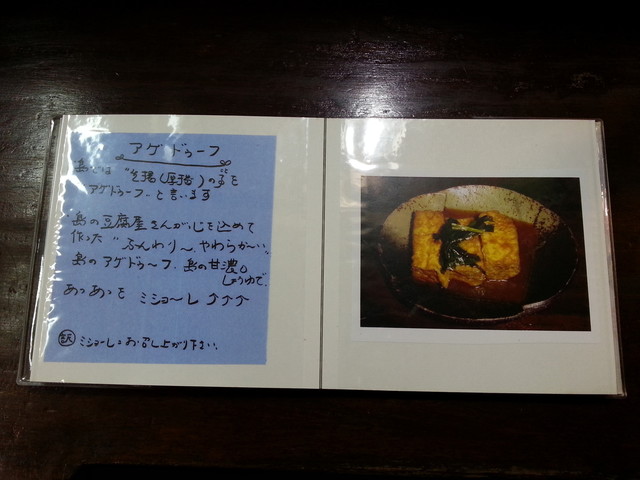 アゲドゥーフ
島では"生揚(厚揚)の事を
アゲドゥーフ"と言います
島の豆腐屋さんが心を込めて
作った"ふんわり〜、やわらか〜い"
島のアゲドゥ〜フ、島の甘濃い
しょうゆで、
あつあつを ミショ〜レ
訳 ミショーレ=お召し上がり下さい。